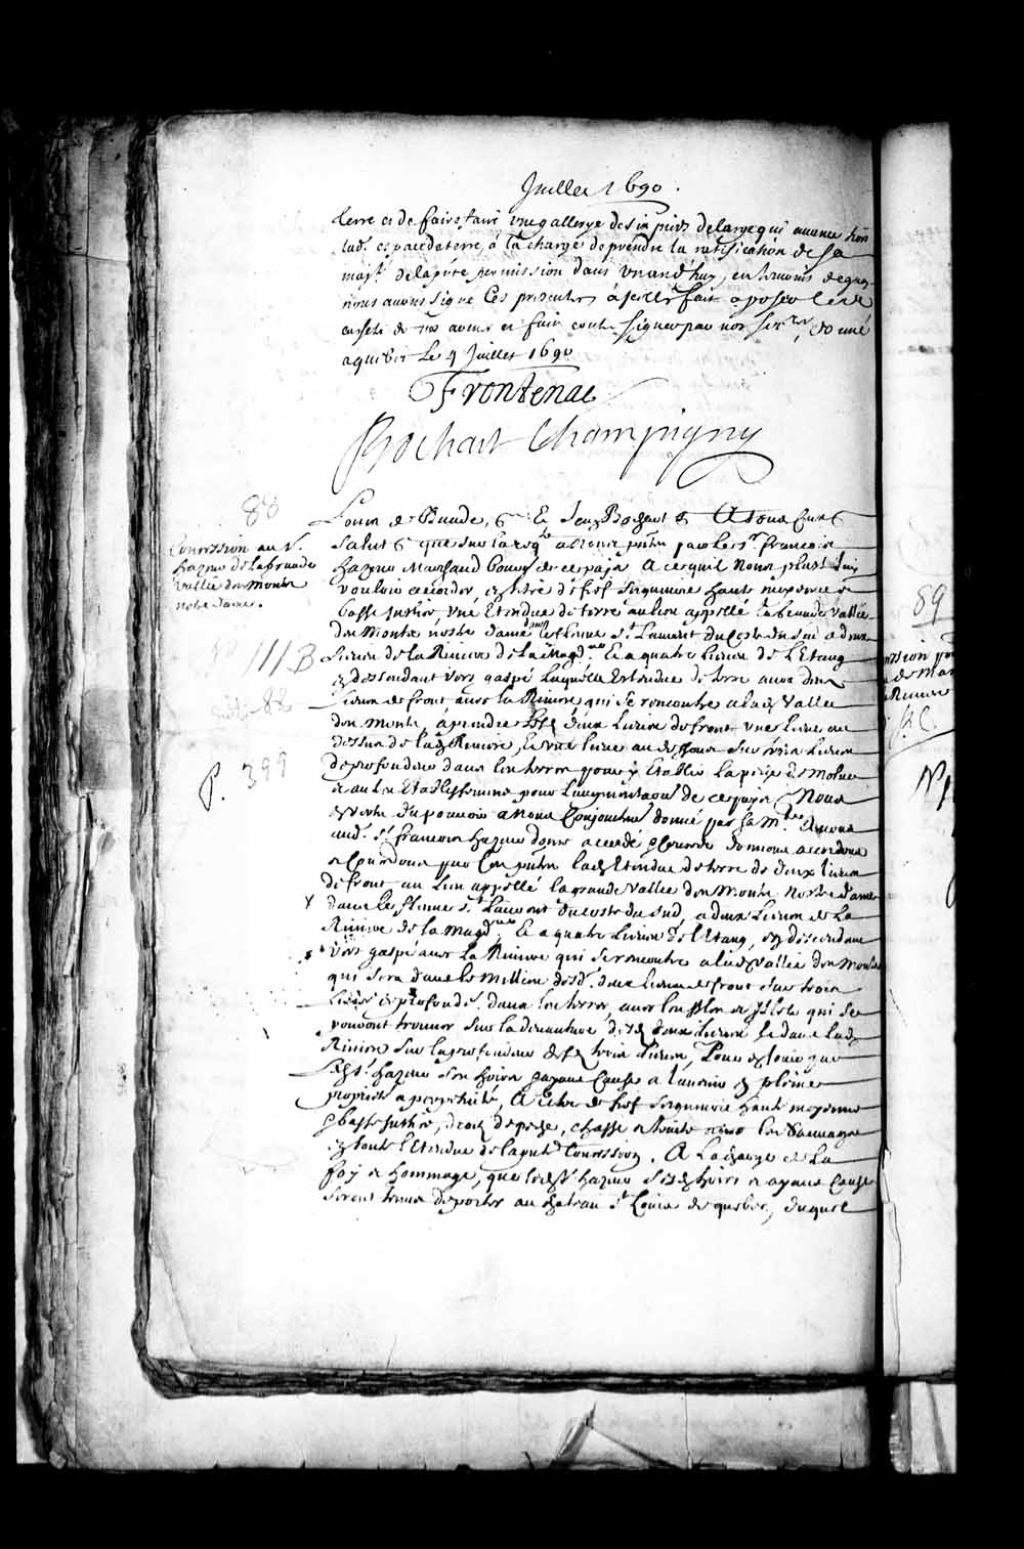 Juillet 1690.
terre et de faire faire une gallerye de six pieds de large qui avance sur
lad. espace de terre, à la charge de prendre la ratification de sa
maj.té de la p̄nte permission dans un an d'huy, en temoins de quoy
nous avons signé ces presentes à icelles fait aposer le
cachets de nos armes et fait contre signer par nos Secr.res, donné
a quebec Le 4 Juillet 1690
Frontenac
Bochart Champigny
88
Concession au S.
hazeur de la grande
vallée des monts
nostre dame.
Louis de Buade, & Et Jean Bochart & A tous ceux &
Salut & que sur la req.te a Nous p̄ntée par le s.r francois
hazeur Marchand bourg. de ce pais A ce qu'il Nous plust Luy
vouloir accorder, en titre de fief Seigneurie haute moyenne et
basse justice, une Etendue de terre au lieu appellé la Grande Vallée
des Monts nostre dame dans le fleuve S.t Laurent du Coste du Sud a deux
Lieues de la Riviere de la Magd.ne Et a quatre Lieues de L'Etang
111B
en dessendant vers gaspé Laquelle Estendue de terre aura deux
88
Lieues de front, avec la Riviere qui se rencontre a lad. Vallée
des monts, a prendre lesd. deux Lieues de front une Lieue au
dessus de lad. Riviere, Et une lieue au dessous sur trois Lieues
P. 399
de profondeur dans les terres pour y Etablir la pesche de Molue
et autre Etablissement pour L'augmentaon de ce pays Nous
en vertu du pouvoir a Nous Conjointement donné par Sa M.té Avons
aud. S.r francois hazeur donné accordé & Concedé donnons accordons
et Concedons par Ces p̄ntes lad. Etendue de terre de deux lieues
de front au Lieu appellé la grande Vallée des Monts Nostre dame
dans le fleuve S.t Laurent du coste du Sud, a deux Lieues de La
Riviere de la Magd.ne Et a quatre Lieues de l'Etang, en descendant
Vers gaspé avec La Riviere qui se rencontre a lad. vallée des Monts
qui sera dans le Millieu desd. deux lieues de front sur trois
Lieues de profond.r dans les terres, avec les Isles et Islets qui se
pouvont trouver sur la devanture desd. deux Lieues Et dans lad.
Riviere sur la profondeur desd. trois Lieues, Pour en jouir par
led. S.r hazeur ses hoirs et ayans Cause a l'avenir en pleine
propriété a perpetuité, A titre de fief Seigneurie haute moyenne
& basse Justice, droit de pesche, chasse et traite avec les Sauvages
en toute l'Etendue de la p̄nte Concession. A La charge de La
foy et hommage, que led. S.r hazeur Sesd. hoirs et ayans Cause
seront tenus de porter au Chateau S.t Louis de quebec, duquel
89